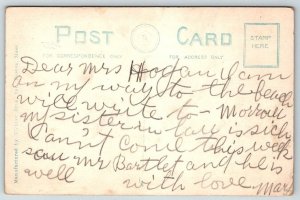 POST CARD
FOR CORRESPONDENCE ONLY
FOR ADDRESS ONLY
STAMP
HERE
Dear Mrs Hogan I am
on my way to the beach
will write to - morrow
my sister in law is sick
Can't come this week
saw Mr Bartlet and he is
well
with love Mary
Manufactured by